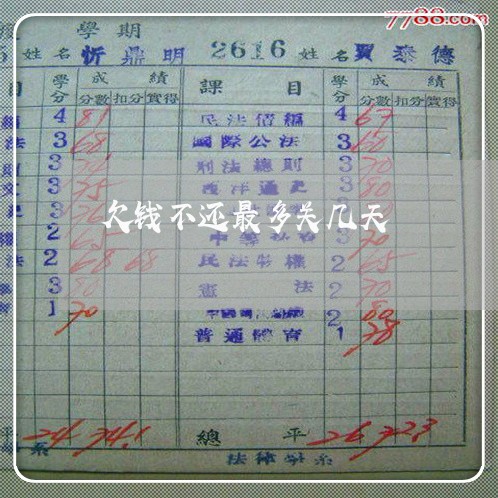 7788.com
學期
姓名 忻鼎明 2616 姓名 賈泰德
目 學分 成績 課目 學分 成績
分數 扣分 實得 分數 扣分 實得
4 81 民法債編 4 67
法 3 68 國際公法 3 60
3 刑法總則 3 70
3 75 西洋通史 3 80
欠钱不还最多关几天
2 3 70
法 2 68 68 民法物權 2 65
3 憲法 2 70
1 70 2 80
普通體育 1 78
平 24 74.1 總平 26 72.3
系 法律學系